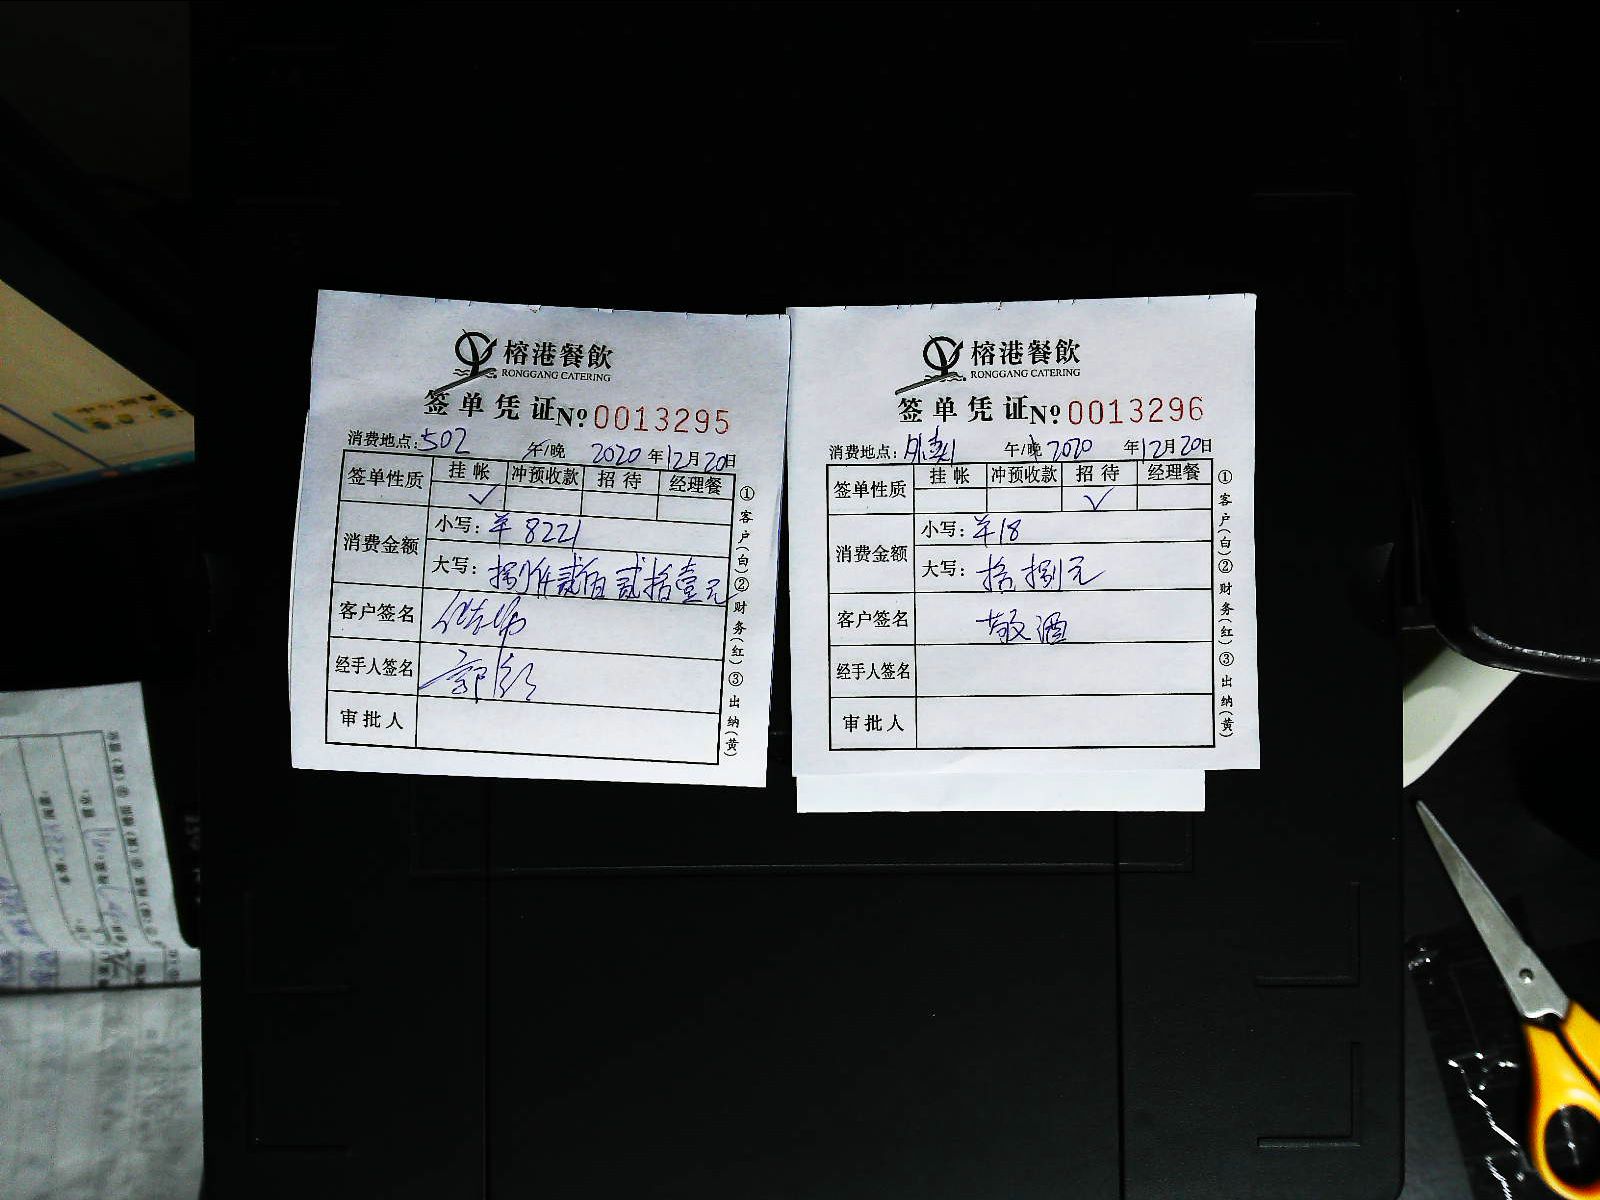 榕港餐飲
RONGGANG CATERING
签单凭证 No 0013295
消费地点: 502 午/晚 2020年12月20日
签单性质 挂帐 冲预收款 招待 经理餐
✓
消费金额 小写: 羊8221
大写: 捌仟贰佰贰拾壹元
客户签名
经手人签名
审批人
①客户(白)②财务(红)③出纳(黄)
榕港餐飲
RONGGANG CATERING
签单凭证 No 0013296
消费地点: 外卖 午/晚 2020年12月20日
签单性质 挂帐 冲预收款 招待 经理餐
✓
消费金额 小写: 羊18
大写: 拾捌元
客户签名 敬酒
经手人签名
审批人
①客户(白)②财务(红)③出纳(黄)